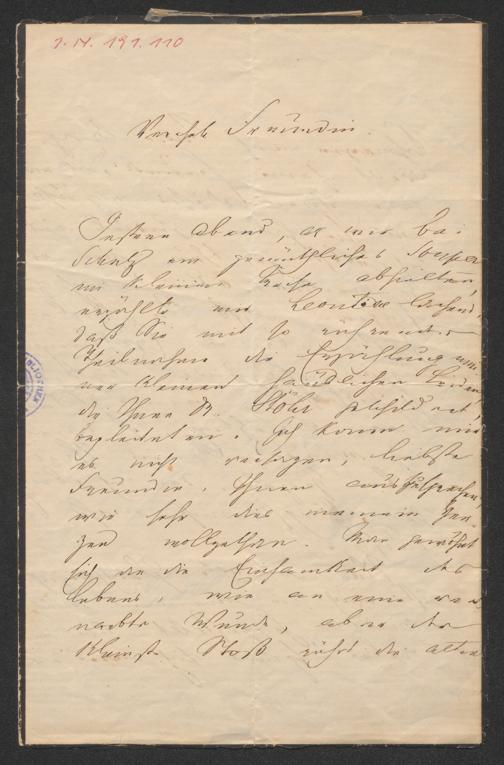 I.N. 191.110
Verehrte Freundin
Gestern Abend, als wir bei
Schulz ein gemüthliches Souper
im kleinen Kreise abhielten,
erzählte mir Leontine Abend,
daß Sie mit so rührender
Theilnahme die Erzählung mei
ner kleinen häuslichen Leiden,
die Ihnen Dr. Stöhr schilderte,
begleiteten. Ich kann mir
es nicht versagen, liebste
Freundin, Ihnen auszusprechen,
wie sehr dies meinem Her
zen wohlgethan. Man gewöhnt
sich an die Einsamkeit des
Lebens, wie an eine ver
narbte Wunde, aber der
kleinste Stoß rührt die alten